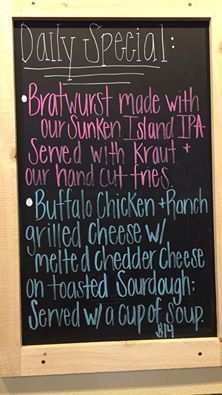 Daily Special:
• Bratwurst made with
our Sunken Island IPA
Served with Kraut +
our hand cut fries.
• Buffalo Chicken + Ranch
grilled cheese w/
melted chedder cheese
on toasted Sourdough:
Served w/ a cup of soup.
$14